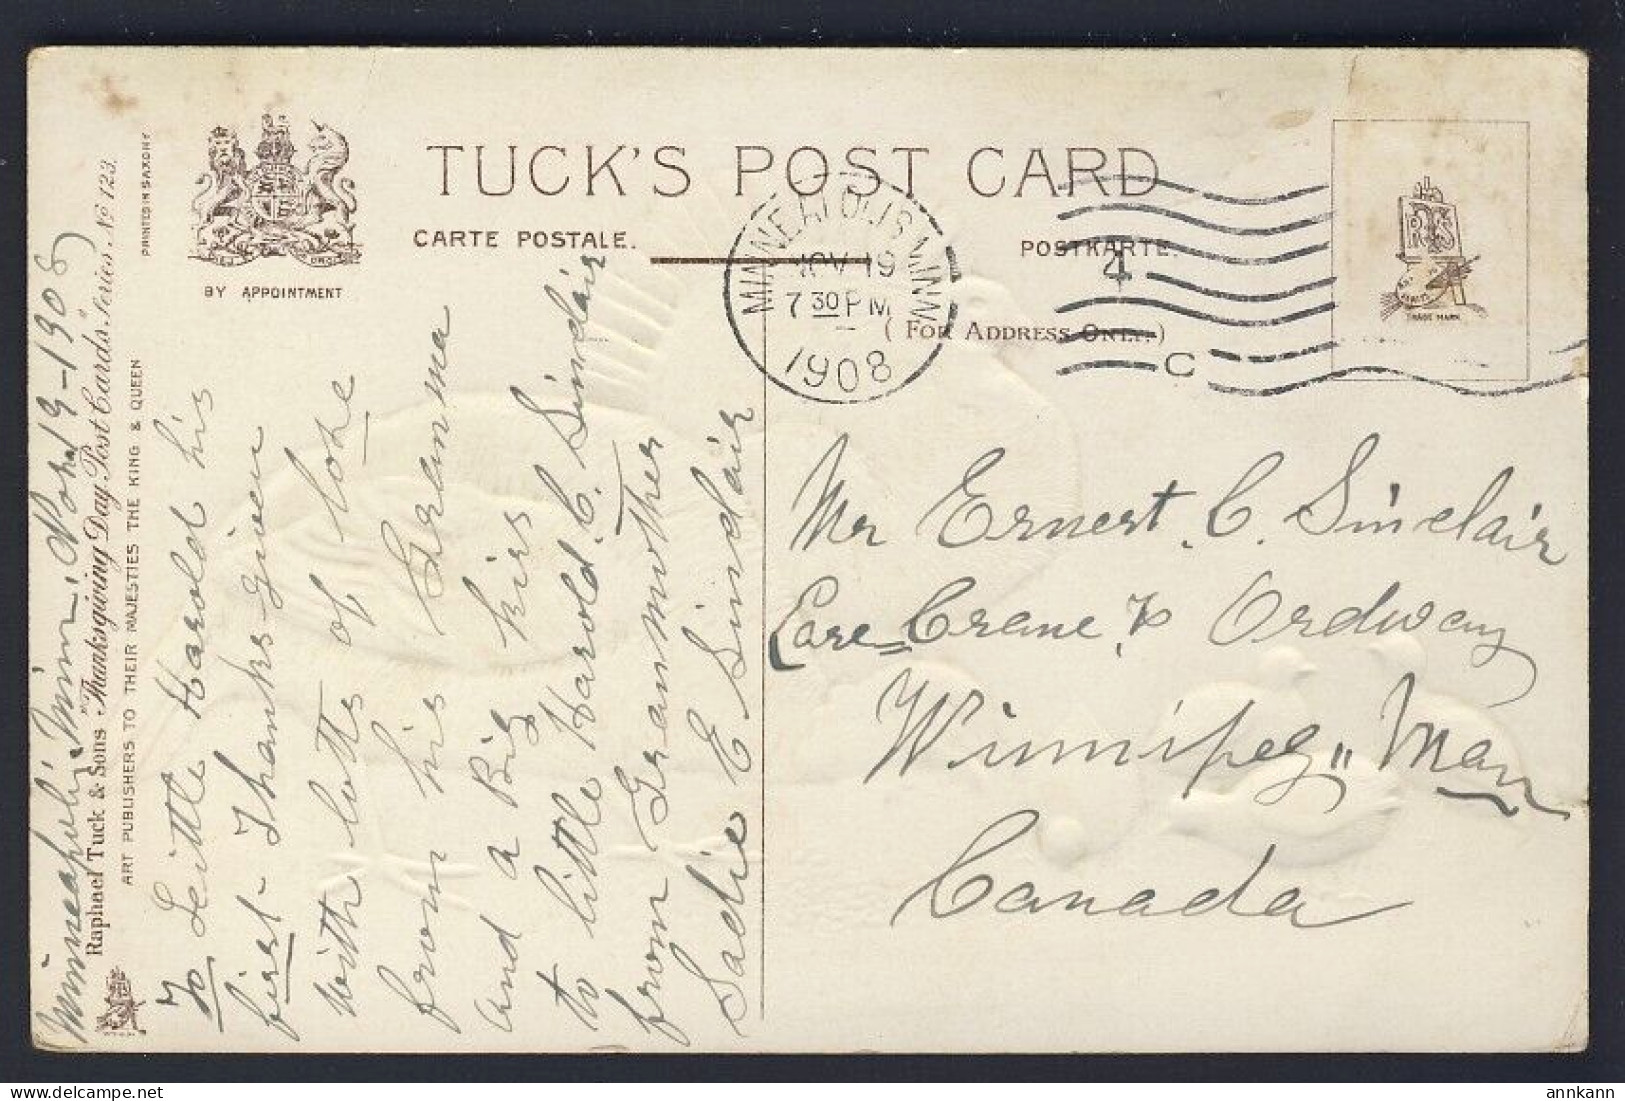 TUCK'S POST CARD
CARTE POSTALE.
POSTKARTE.
( FOR ADDRESS ONLY. )
BY APPOINTMENT
MINNEAPOLIS MINN
NOV 19
7 30 PM
1908
4
C
TRADE MARK
Mr Ernest. C. Sinclair
Care Crane & Ordway
Winnipeg " Man
Canada
Minneapolis Minn. Nov 19-1908
Raphael Tuck & Sons "Thanksgiving Day Post Cards." Series No 123.
PRINTED IN SAXONY
ART PUBLISHERS TO THEIR MAJESTIES THE KING & QUEEN
To Little Harold his
first - Thanks-given
with lotts of love
from his Granma
and a Big kiss
to little Harold. C. Sinclair
from Granmother
Sadie E Sinclair
annkann